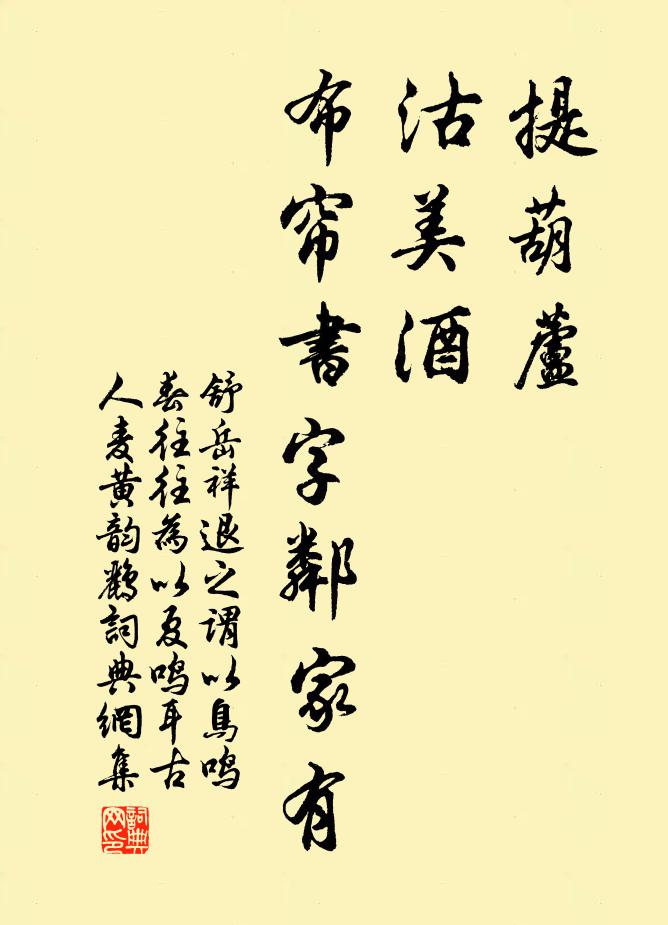 提葫蘆
沽美酒
布帘書字鄰家有
舒岳祥退之謂以鳥鳴
春往往為以夏鳴耳古
人麦黄韵鹂詞典網集
詞典
网印